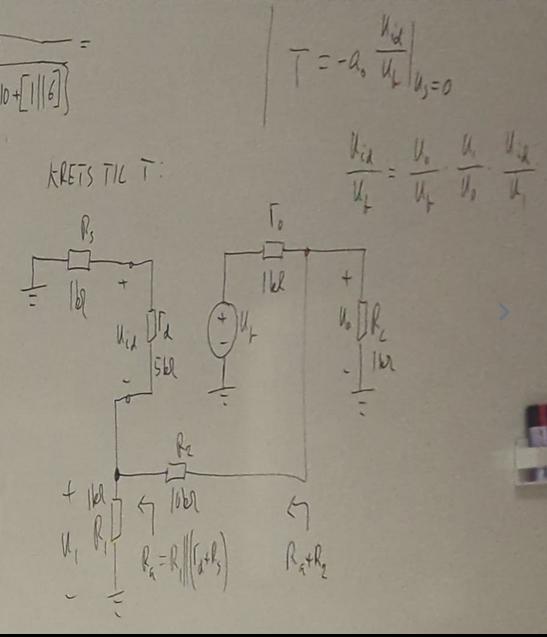 =
10+[1||6]
T = -a₀ u_id/u_t |u_s=0
u_id/u_t = u_o/u_t · u_1/u_o · u_id/u_1
KRETS TILL T:
R_s
1kΩ
+
u_id
r_d
5kΩ
-
r_o
1kΩ
+
-
u_t
+
u_o
R_L
1kΩ
-
R_2
10kΩ
+
1kΩ
R_1
u_1
-
R_a = R_1||(r_d+R_s)
R_a+R_2